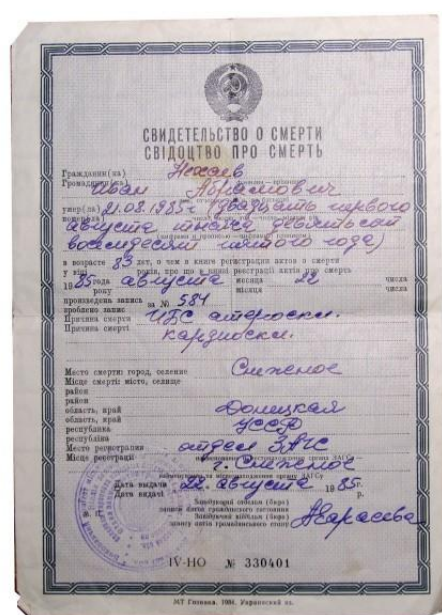 СВИДЕТЕЛЬСТВО О СМЕРТИ
СВІДОЦТВО ПРО СМЕРТЬ
Гражданин(ка) Нехаев
Громадянин(ка)
Иван Абрамович
умер(ла) 21.08.1985г (двадцать первого
августа тысяча девятьсот
восемдесят пятого года)
в возрасте 83 лет, о чем в книге регистрации актов о смерти
у віці років, про що в книзі реєстрації актів про смерть
1985 года августа месяца 22 числа
року місяця числа
произведена запись за № 584
зроблено запис
Причина смерти ИБС атероскл.
Причина смерті кардиоскл.
Место смерти: город, селение Снежное
Місце смерті: місто, селище
район
район
область, край Донецкая
область, край
республика УССР
республіка
Место регистрации отдел ЗАГС
Місце реєстрації
наименование и местонахождение органа ЗАГСа
г. Снежное
Дата выдачи 22 августа 1985г.
Дата видачі
Заведующий отделом (бюро)
записей актов гражданского состояния
Завідуючий відділом (бюро)
запису актів громадянського стану
IV-НО № 330401
МТ Гознака. 1984.